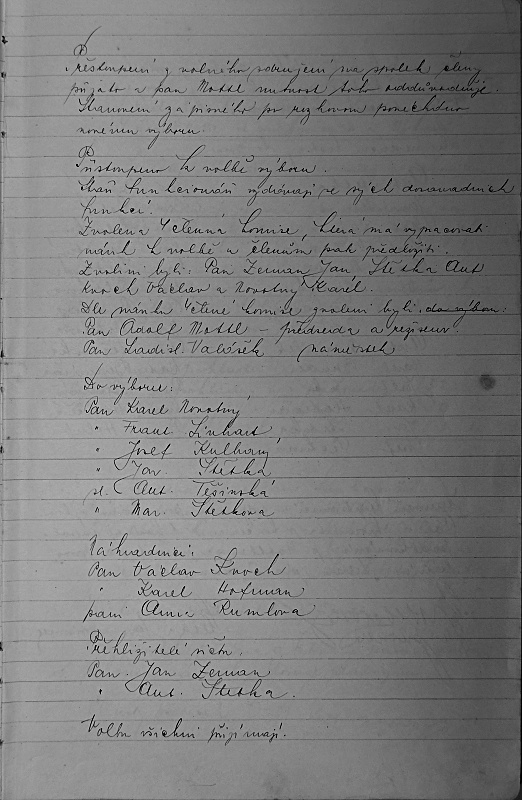 Přestoupení z volného sdružení na spolek členy
přijato a pan Mottl nutnost toho odůvodňuje.
Stanovení zápisného po rozhovoru ponecháno
novému výboru.
Přistoupeno k volbě výboru.
Staří funkcionáři vzdávají se svých dosavadních
funkcí.
Zvolena 4 členná komise, která má vypracovati
návrh k volbě a členům pak předložiti.
Zvoleni byli: Pan Zeman Jan, Stětka Ant
Kroch Václav a Novotný Karel.
Dle návrhu 4členné komise zvoleni byli do výboru:
Pan Adolf Mottl – předseda a režiseur.
Pan Ladisl. Valášek náměstek
Do výboru:
Pan Karel Novotný
" Frant. Linhart
" Josef Kulhavý
" Jar. Stětka
sl. Ant. Těšinská
" Mar. Stětkova
Náhradníci:
Pan Václav Kroch
" Karel Hofman
paní Anna Rumlova
Přehlížitelé účtů.
Pan. Jan Zeman
" Ant. Stetka.
Volbu všichni přijímají.